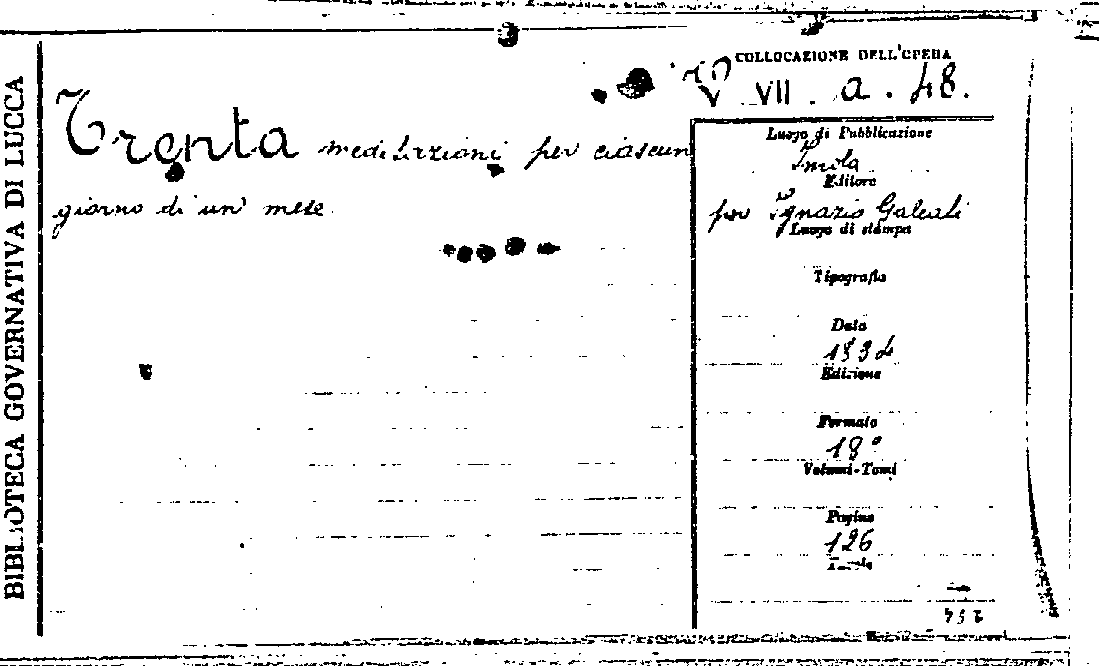 BIBLIOTECA GOVERNATIVA DI LUCCA
COLLOCAZIONE DELL'OPERA
V VII. a. 48.
Trenta meditazioni per ciascun
giorno di un mese
Luogo di Pubblicazione
Imola
Editore
per Ignazio Galeati
Luogo di stampa
Tipografia
Data
1834
Edizione
Formato
18°
Volumi-Tomi
Pagine
126
Tavole